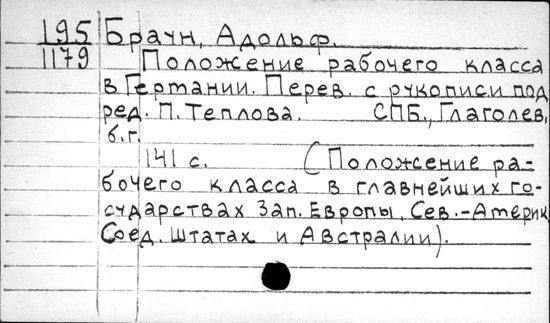 195 Браун, Адольф.
1179 Положение рабочего класса
в Германии. Перев. с рукописи под
ред. П. Теплова. СПБ., Глаголев,
б.г.
141 с. (Положение ра-
бочего класса в главнейших го-
сударствах Зап. Европы, Сев.-Америк.
Соед. Штатах и Австралии).